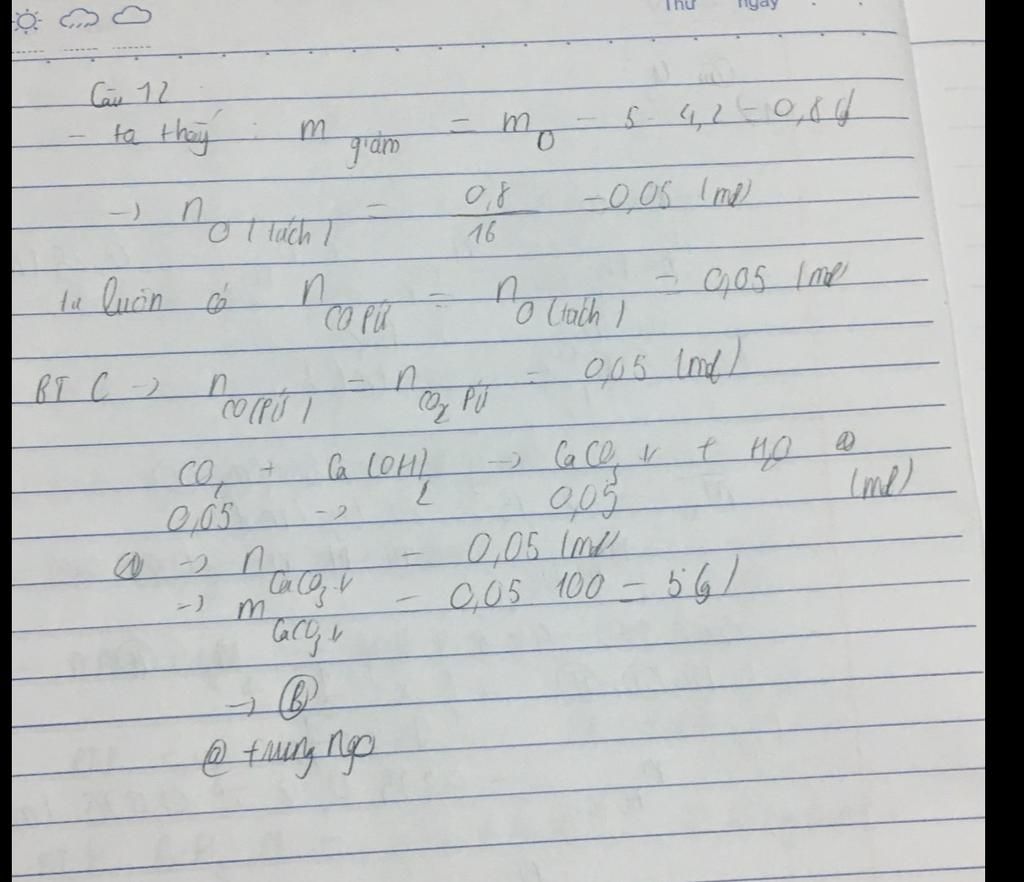 Thứ ngày
Câu 12
- ta thấy : m giảm = m O = 5 - 4,2 = 0,8 g
→ n O (tách) = 0,8 / 16 = 0,05 (mol)
ta luôn có n CO pứ = n O (tách) = 0,05 (mol)
BT C → n CO (pứ) = n CO₂ pứ = 0,05 (mol)
CO₂ + Ca(OH)₂ → CaCO₃↓ + H₂O ①
0,05 → 0,05 (mol)
① → n CaCO₃↓ = 0,05 (mol)
→ m CaCO₃↓ = 0,05 100 = 5 (g)
→ Ⓑ
@ trung ngo